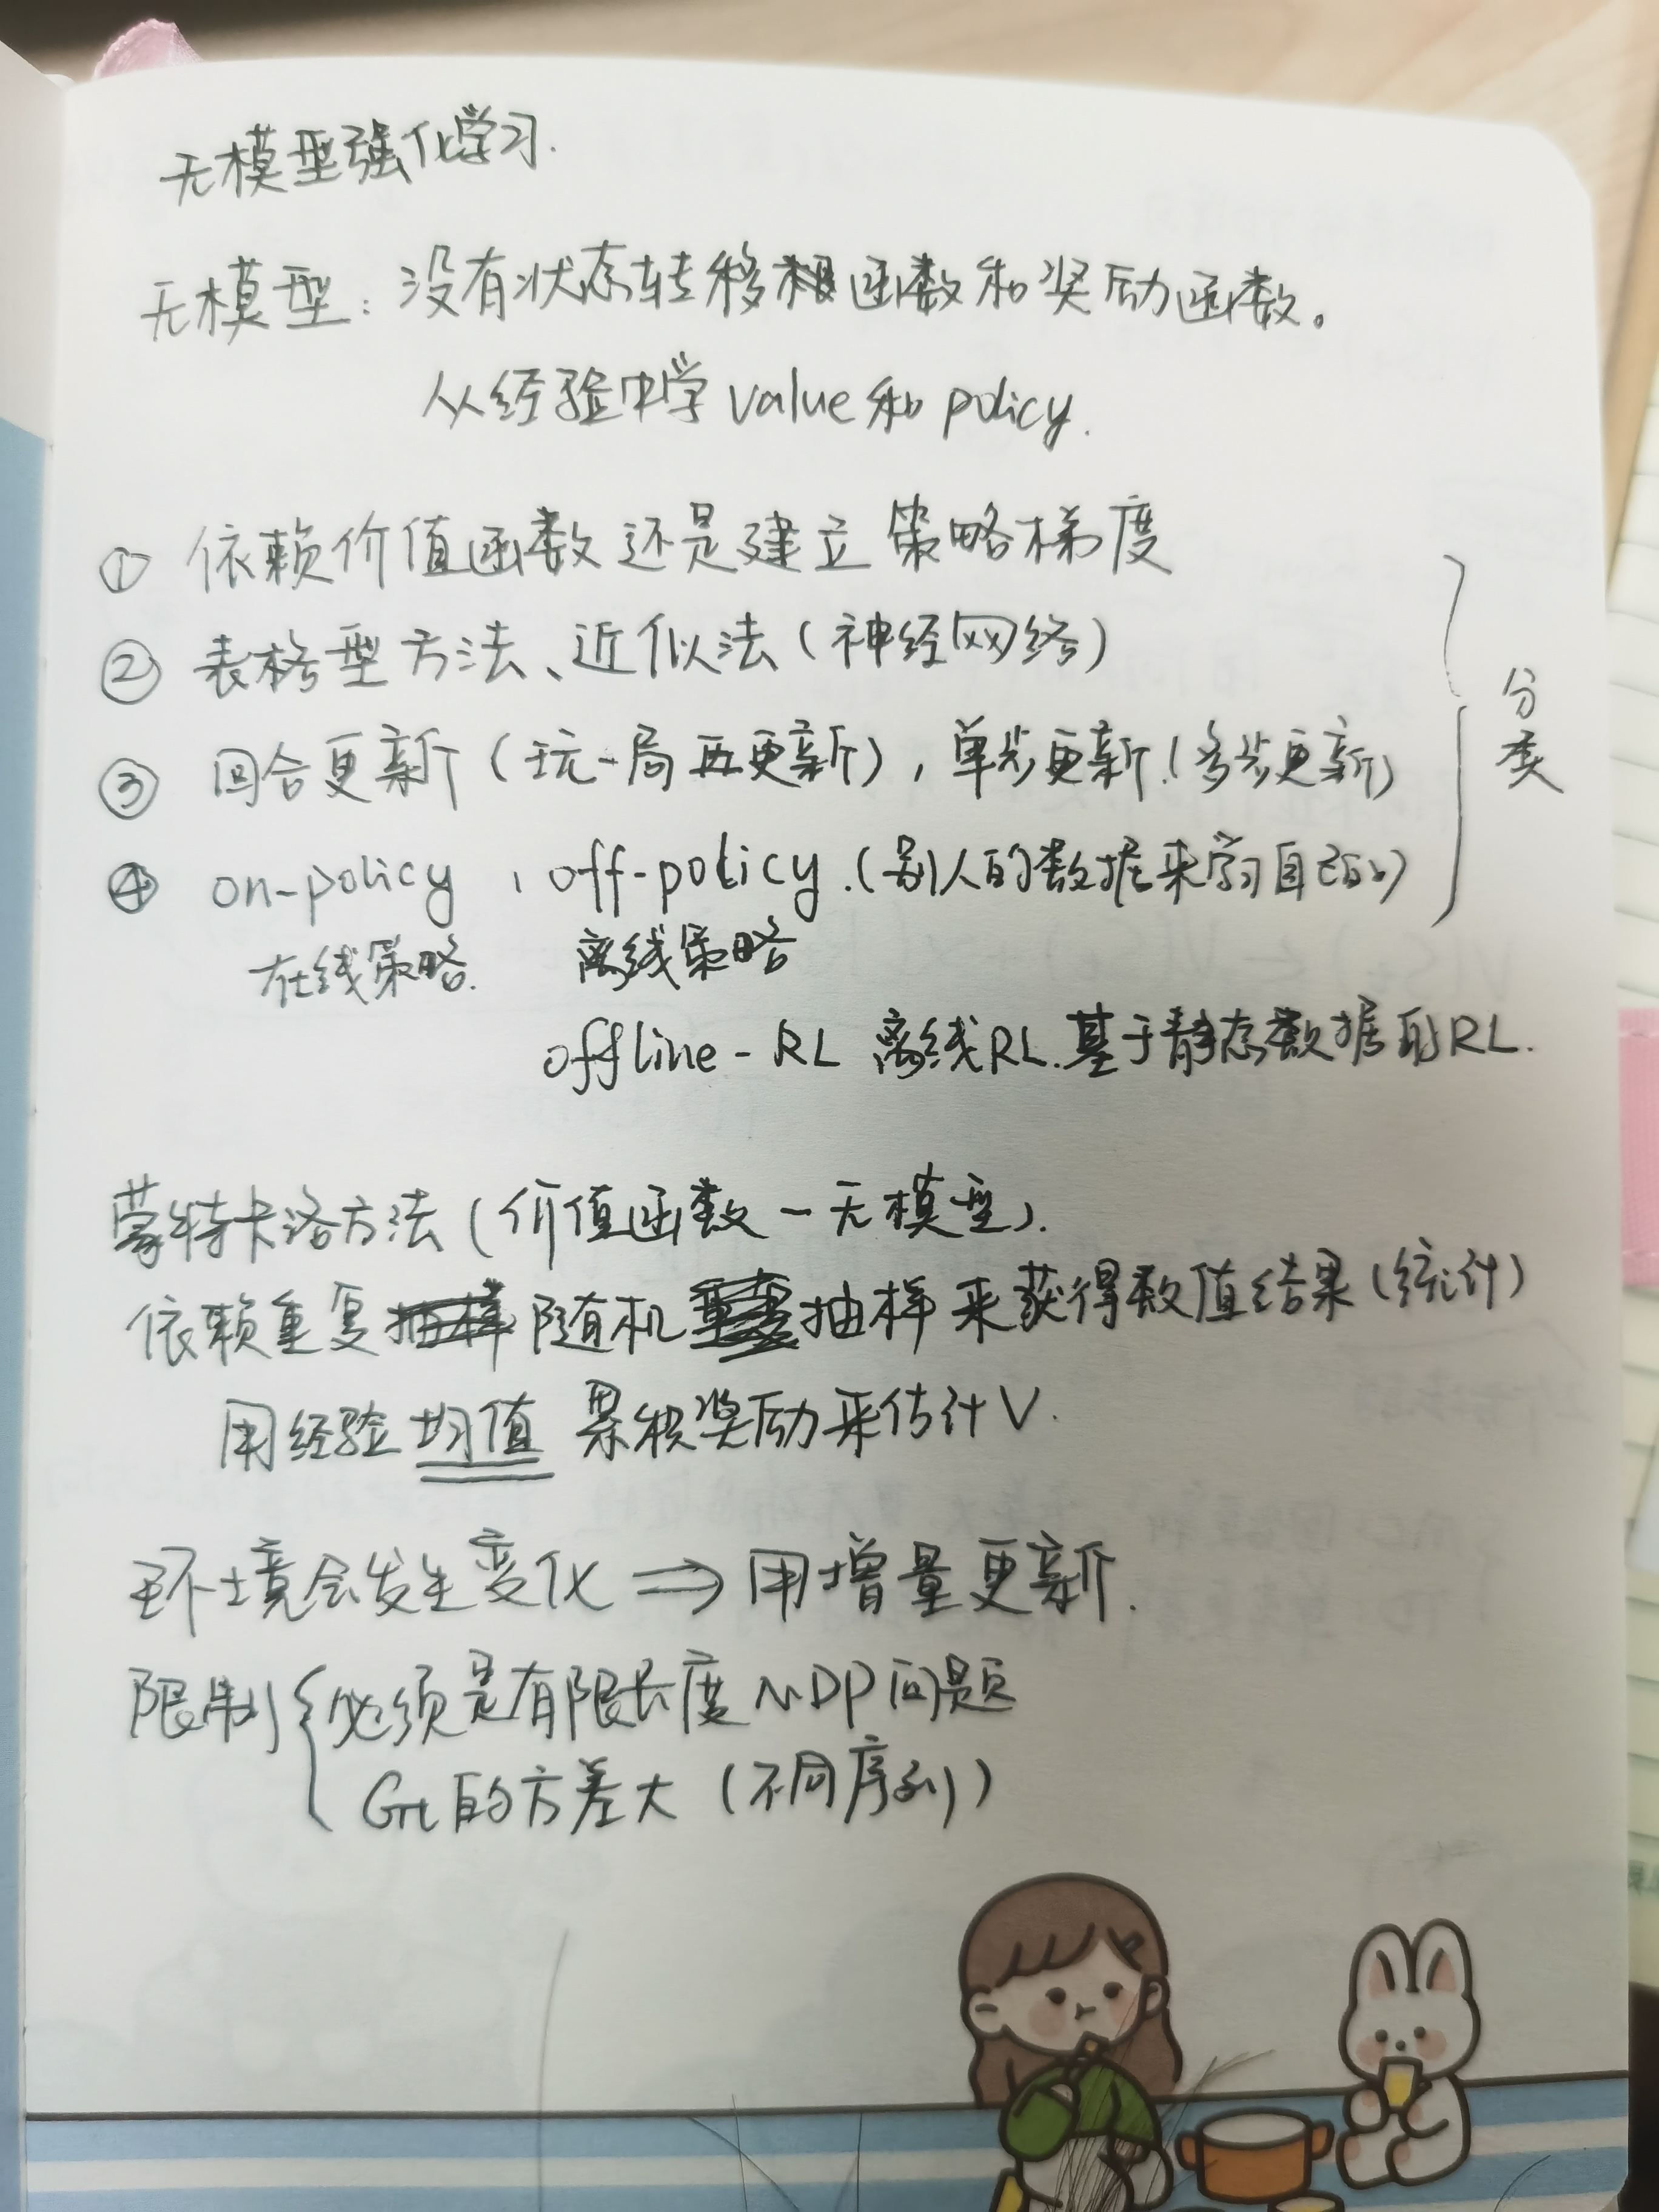 无模型强化学习.
无模型：没有状态转移函数和奖励函数。
从经验中学value和policy.
① 依赖价值函数还是建立策略梯度
② 表格型方法、近似法（神经网络）
③ 回合更新（玩一局再更新），单步更新.（多步更新）
④ on-policy , off-policy.（别人的数据来学习自己的）
分类
在线策略. 离线策略
offline-RL 离线RL.基于静态数据的RL.
蒙特卡洛方法（价值函数-无模型）.
依赖重复随机抽样来获得数值结果（统计）
用经验均值 累积奖励来估计V.
环境会发生变化 ⇒ 用增量更新.
限制{必须是有限长度MDP问题
Gt的方差大（不同序列）